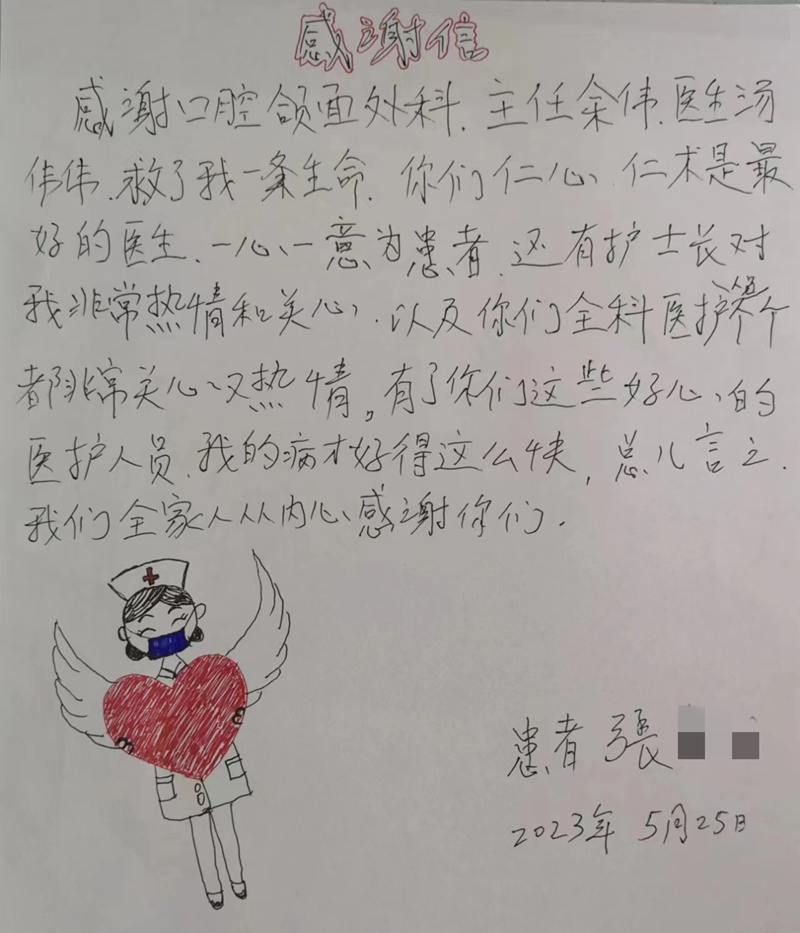 感谢信
感谢口腔颌面外科.主任余伟.医生汤
伟伟.救了我一条生命.你们仁心、仁术是最
好的医生.一心一意为患者.还有护士长对
我非常热情和关心.以及你们全科医护个个
都非常关心又热情。有了你们这些好心的
医护人员.我的病才好得这么快,总儿言之.
我们全家人从内心感谢你们.
患者 張
2023年 5月25日